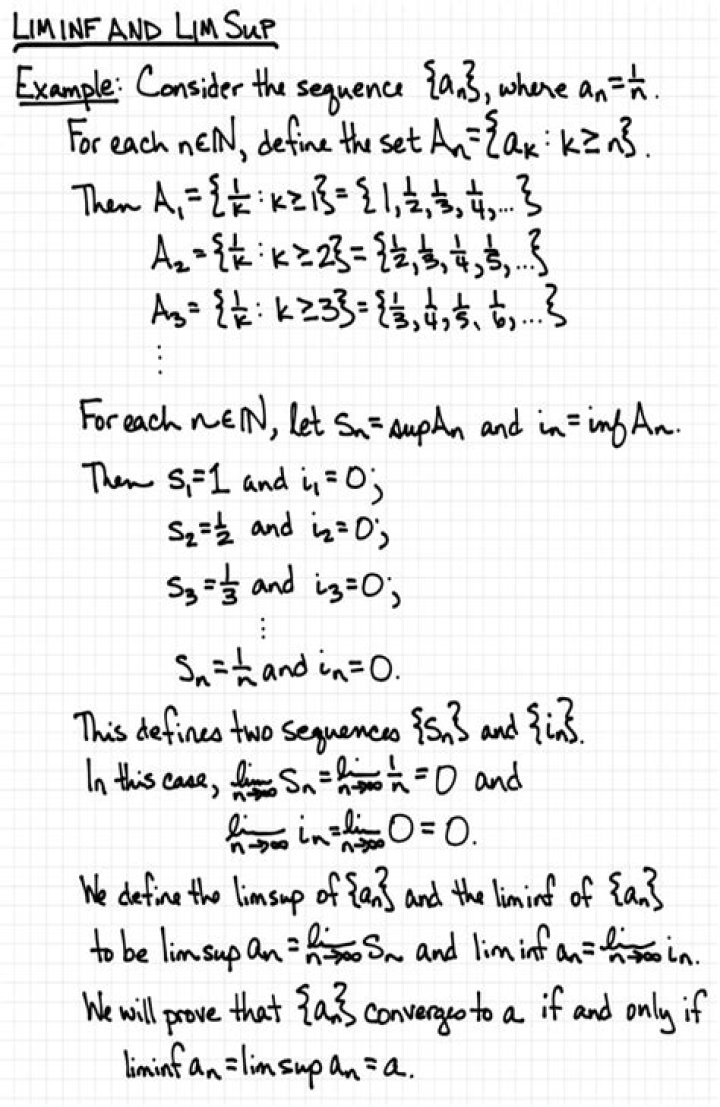 LIM INF AND LIM SUP
Example: Consider the sequence {aₙ}, where aₙ = 1/n.
For each n∈ℕ, define the set Aₙ = {aₖ : k ≥ n}.
Then A₁ = {1/k : k ≥ 1} = {1, 1/2, 1/3, 1/4, ...}
A₂ = {1/k : k ≥ 2} = {1/2, 1/3, 1/4, 1/5, ...}
A₃ = {1/k : k ≥ 3} = {1/3, 1/4, 1/5, 1/6, ...}
⋮
For each n∈ℕ, let sₙ = sup Aₙ and iₙ = inf Aₙ.
Then s₁ = 1 and i₁ = 0;
s₂ = 1/2 and i₂ = 0;
s₃ = 1/3 and i₃ = 0;
⋮
sₙ = 1/n and iₙ = 0.
This defines two sequences {sₙ} and {iₙ}.
In this case, lim n→∞ sₙ = lim n→∞ 1/n = 0 and
lim n→∞ iₙ = lim n→∞ 0 = 0.
We define the limsup of {aₙ} and the liminf of {aₙ}
to be limsup aₙ = lim n→∞ sₙ and liminf aₙ = lim n→∞ iₙ.
We will prove that {aₙ} converges to a if and only if
liminf aₙ = limsup aₙ = a.